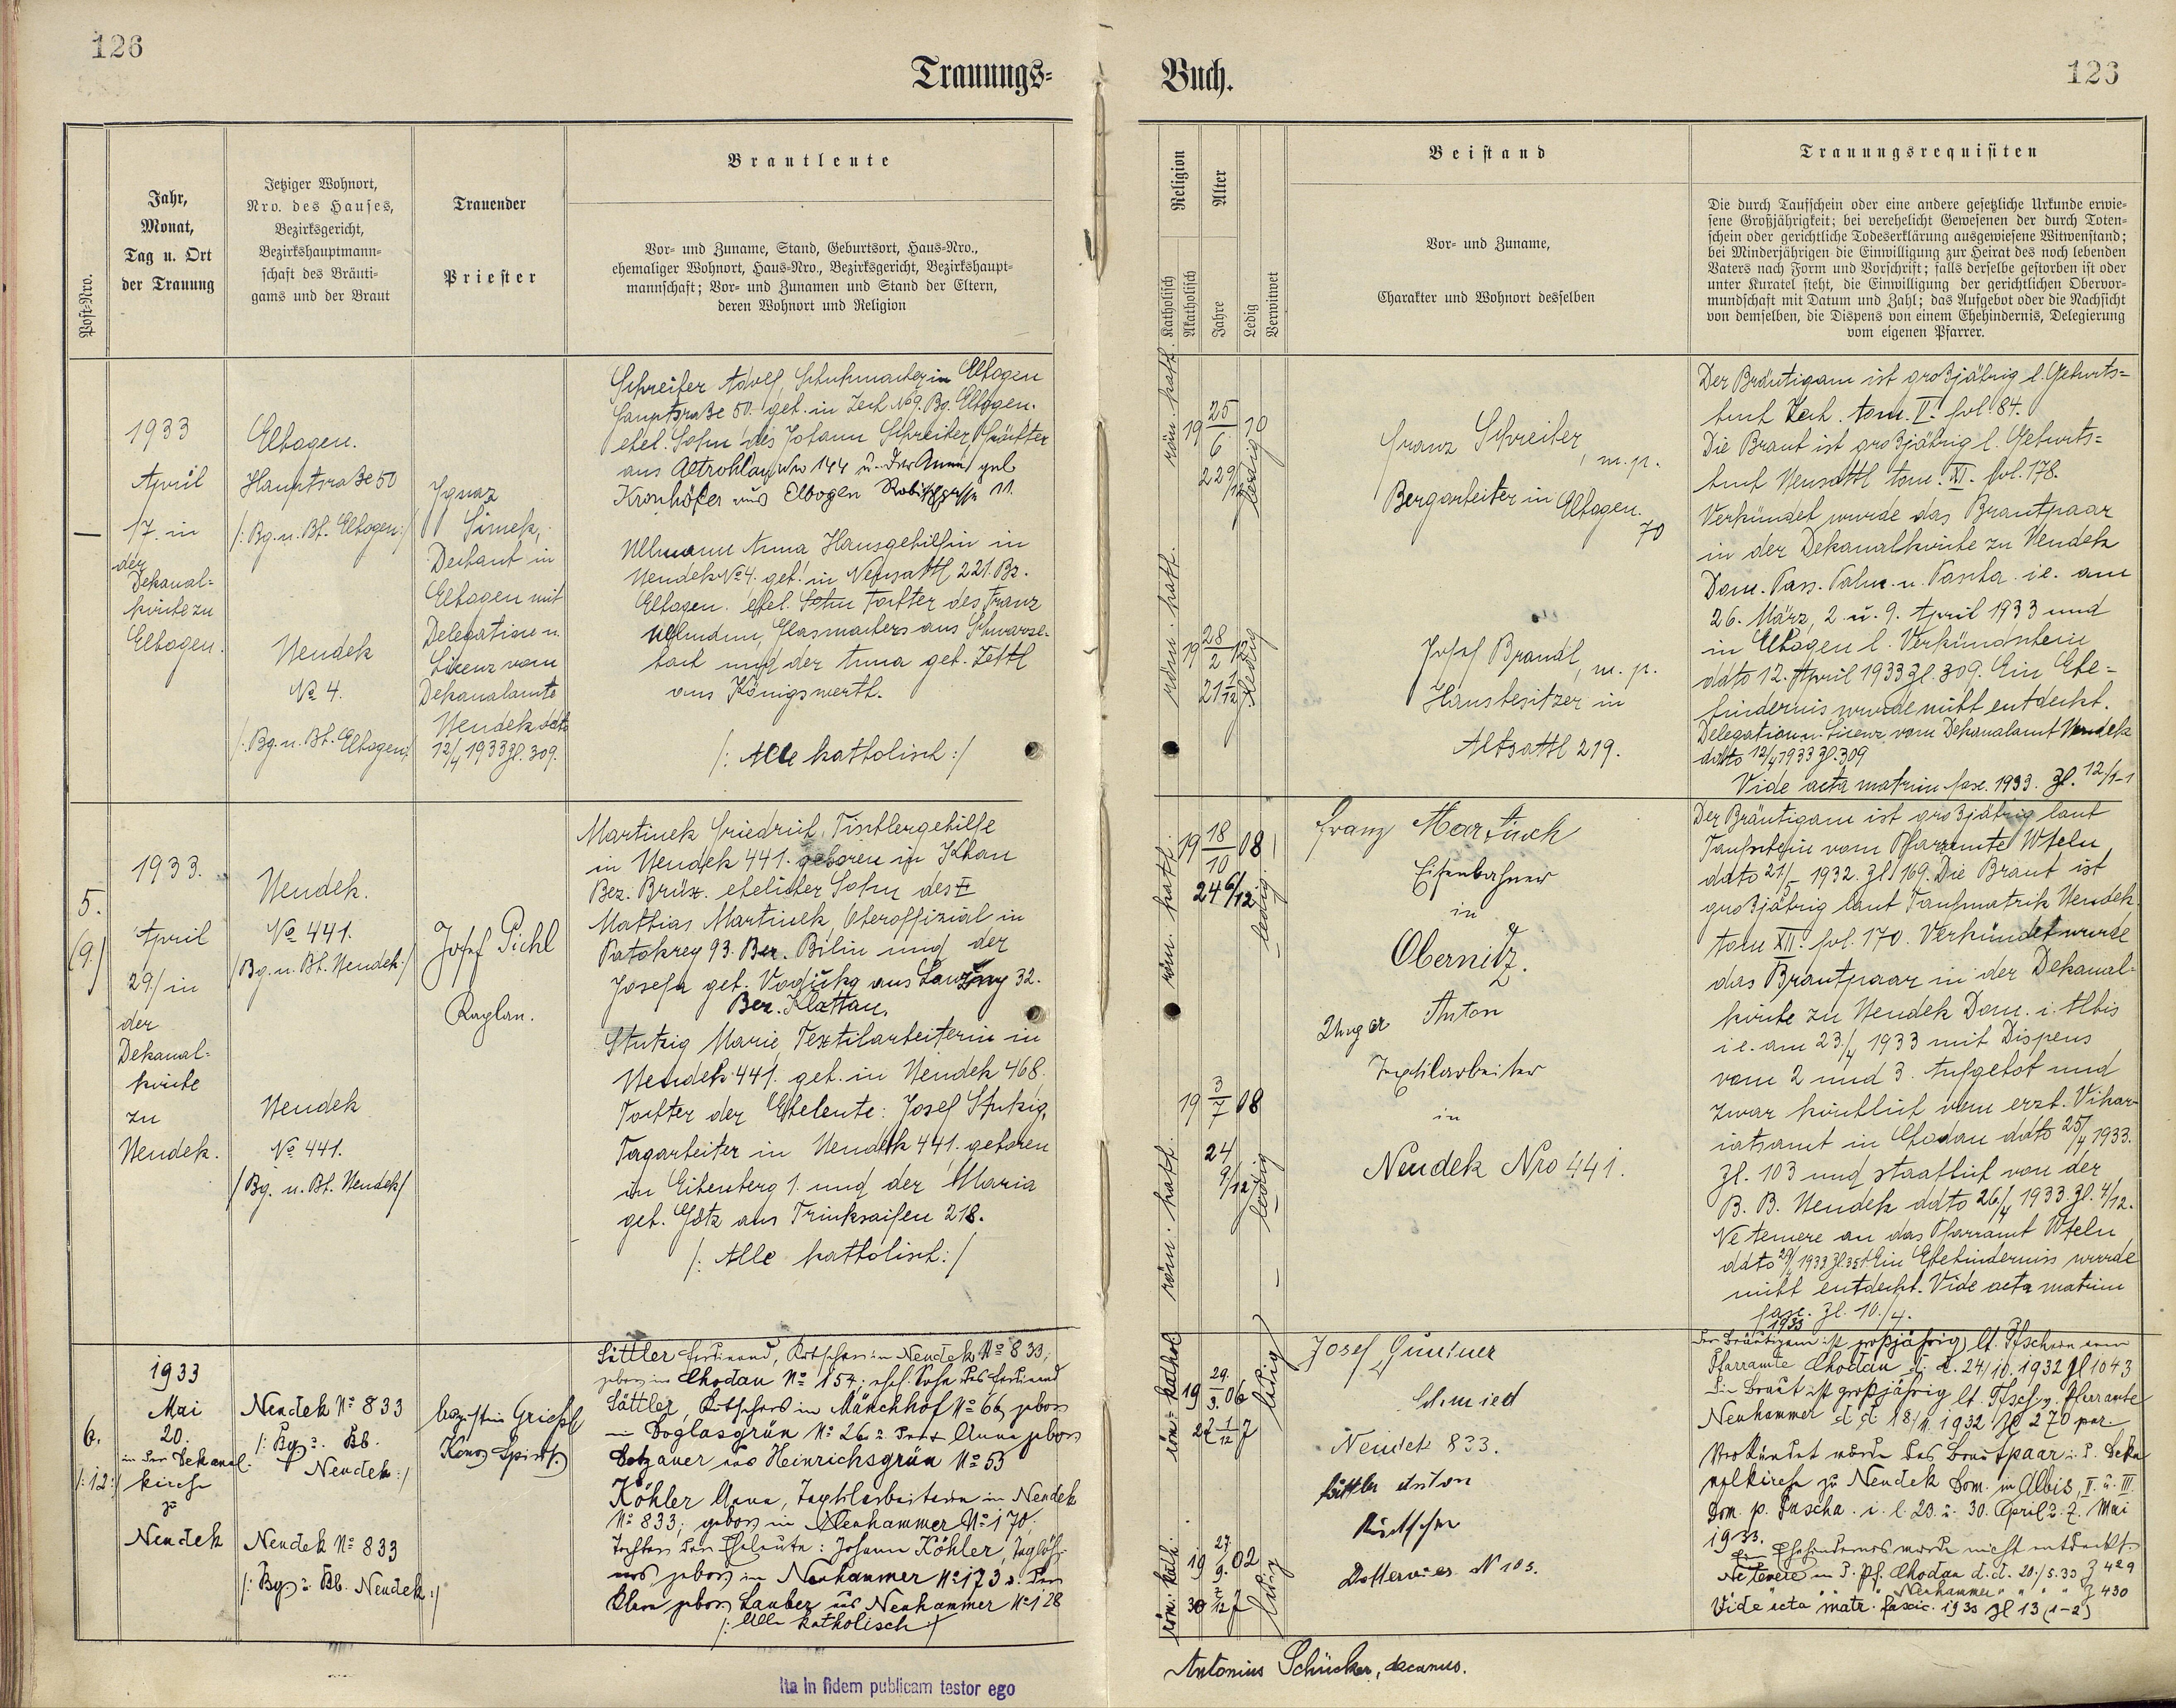 126
Trauungs-
Buch.
123
Post-Nro.
Jahr,
Monat,
Tag u. Ort
der Trauung
Jetziger Wohnort,
Nro. des Hauses,
Bezirksgericht,
Bezirkshauptmann-
schaft des Bräuti-
gams und der Braut
Trauender
Priester
Brautleute
Vor- und Zuname, Stand, Geburtsort, Haus-Nro.,
ehemaliger Wohnort, Haus-Nro., Bezirksgericht, Bezirkshaupt-
mannschaft; Vor- und Zunamen und Stand der Eltern,
deren Wohnort und Religion
Religion
Katholisch
Akatholisch
Alter
Jahre
Ledig
Verwitwet
Beistand
Vor- und Zuname,
Charakter und Wohnort desselben
Trauungsrequisiten
Die durch Taufschein oder eine andere gesetzliche Urkunde erwie-
sene Großjährigkeit; bei verehelicht Gewesenen der durch Toten-
schein oder gerichtliche Todeserklärung ausgewiesene Witwenstand;
bei Minderjährigen die Einwilligung zur Heirat des noch lebenden
Vaters nach Form und Vorschrift; falls derselbe gestorben ist oder
unter Kuratel steht, die Einwilligung der gerichtlichen Obervor-
mundschaft mit Datum und Zahl; das Aufgebot oder die Nachsicht
von demselben, die Dispens von einem Ehehindernis, Delegierung
vom eigenen Pfarrer.
—
1933
April
17. in
der
Dekanal-
kirche zu
Elbogen.
Elbogen.
Hauptstraße 50
/: Bg. u. Bt. Elbogen:/
Nendek
No 4.
/: Bg. u. Bt. Elbogen:/
Ignaz
Simek,
Dechant in
Elbogen mit
Delegation u.
Lizenz vom
Dekanalamte
Nendek ddto
12/4 1933 Zl. 309.
Schreiber Adolf, Schuhmacher in Elbogen
Hauptstraße 50. geb. in Zech No 9. Bg. Elbogen.
ehel. Sohn des Johann Schreiber,
aus Altrohlau No 144 u. der Anna geb.
Kronhöfer aus Elbogen 11.
Ullmann Anna Hausgehilfin in
Nendek No 4. geb. in Neusattl 221. Bz.
Elbogen. ehel. Sohn Tochter des Franz
Ullmann, Glasmachers aus
und der Anna geb. Zettl
aus Königswerth.
/: Alle katholisch:/
röm. kath.
19 25/6 10
22 9/12
ledig
röm. kath.
19 28/2 12
21 1/12
ledig
Franz Schreiber, m. p.
Bergarbeiter in Elbogen.
70
Josef Brandl, m. p.
Hausbesitzer in
Altsattl 219.
Der Bräutigam ist großjährig l. Geburts-
buch Zech. tom. V. fol. 84.
Die Braut ist großjährig l. Geburts-
buch Neusattl tom. XI. fol. 178.
Verkündet wurde das Brautpaar
in der Dekanalkirche zu Nendek
Dom. Pass. Palm. u. Pascha. i.e. am
26. März, 2. u. 9. April 1933 und
in Elbogen l. Verkündschein
ddto 12. April 1933 Zl. 309. Ein Ehe-
hindernis wurde nicht entdeckt.
Delegation u. Lizenz vom Dekanalamt Nendek
ddto 12/4 1933 Zl. 309
Vide acta matrim fasc. 1933. Zl. 12/1-1
5.
(9.)
1933.
April
29./ in
der
Dekanal-
kirche
zu
Nendek.
Nendek.
No 441.
/Bg. u. Bt. Nendek:/
Nendek
No 441.
/Bg. u. Bt. Nendek/
Josef Pichl
Kaplan.
Martinek Friedrich, Tischlergehilfe
in Nendek 441. geboren in Kkan
Bez. Brüx. ehelicher Sohn des
Mathias Martinek, Oberoffizial in
Patokrey 93. Bez. Bilin und der
Josefa geb. aus 32.
Bez. Klattau.
Stutzig Marie, Textilarbeiterin in
Nendek 441. geb. in Nendek 468.
Tochter der Eheleute: Josef Stutzig,
Tagarbeiter in Nendek 441. geboren
in Eibenberg 1. und der Maria
geb. Götz aus Trinksaifen 218.
/: Alle katholisch:/
röm. kath.
19 18/10 08
24 6/12
ledig
röm. kath.
19 3/7 08
24
9/12
ledig
Franz Martinek
Eisenbahner
in
Obernitz.
Unger Anton
Textilarbeiter
in
Neudek Nro 441.
Der Bräutigam ist großjährig laut
Taufschein vom Pfarramte Wteln
ddto 21/5 1932. Zl. 169. Die Braut ist
großjährig laut Taufmatrik Nendek
tom XII. fol. 170. Verkündet wurde
das Brautpaar in der Dekanal-
kirche zu Nendek Dom. i. Albis
i.e. am 23./4 1933 mit Dispens
vom 2 und 3. Aufgebot und
zwar kirchlich vom erzb. Vikar-
iatsamt in Chodau ddto 25/4 1933.
Zl. 103 und staatlich von der
B. B. Nendek ddto 26/4 1933. Zl. 4/12.
Ne temere an das Pfarramt Wteln
ddto 29/4 1933 Ein Ehehinderniss wurde
nicht entdeckt. Vide acta matrim
fasc. Zl. 10./4.
1933
6.
/:12:/
1933
Mai
20.
in der Dekanal-
kirche
zu
Nendek
Nendek No 833
/: Bg u. Bb.
Nendek:/
Nendek No 833
/: Bg u. Bb. Nendek:/
Augustin Grießl
Sättler Ferdinand, Kutscher in Neudek No 833,
geboren in Chodau No 154; ehel. Sohn des Ferdinand
Sättler, Kutschers in Münchhof No 66, geboren
in Doglasgrün No 26 u. der Anna geboren
aus Heinrichsgrün No 53
Köhler Anna, Textilarbeiterin in Neudek
No 833; geboren in Neuhammer No 170;
Tochter der Eheleute: Johann Köhler, Taglöh-
ners, geboren in Neuhammer No 173 u. der
geboren Lauber aus Neuhammer No 128
/: Alle katholisch:/
röm: kathol
19 29./9. 06
ledig
röm: kath.
19 27./9. 02
30 7/12
ledig
Josef
Schmied
Neudek 833.
Sättler Anton
Kutscher
No 103.
Der Bräutigam ist großjährig lt. Tfschein vom
Pfarramte Chodau d. d. 24/10. 1932 Zl 1043
Die Braut ist großjährig lt. Tfsch v. Pfarramte
Neuhammer d d 18/11. 1932 Zl 270
Verkündet wurde das Brautpaar i. d. Deka-
nalkirche zu Neudek Dom. in Albis, II. u. III.
Dom. p. Pascha. i. l. 23. u. 30. April u. 7. Mai
1933.
Ein Ehehindernis wurde nicht entdeckt.
Ne temere an d. Pf. Chodau d. d. 20./5. 33 Z 429
" " " " Neuhammer " " " " Z 430
Vide acta matr. fascic. 1933 Zl 13 (1-2)
Ita in fidem publicam testor ego
Antonius Schücker, decanus.